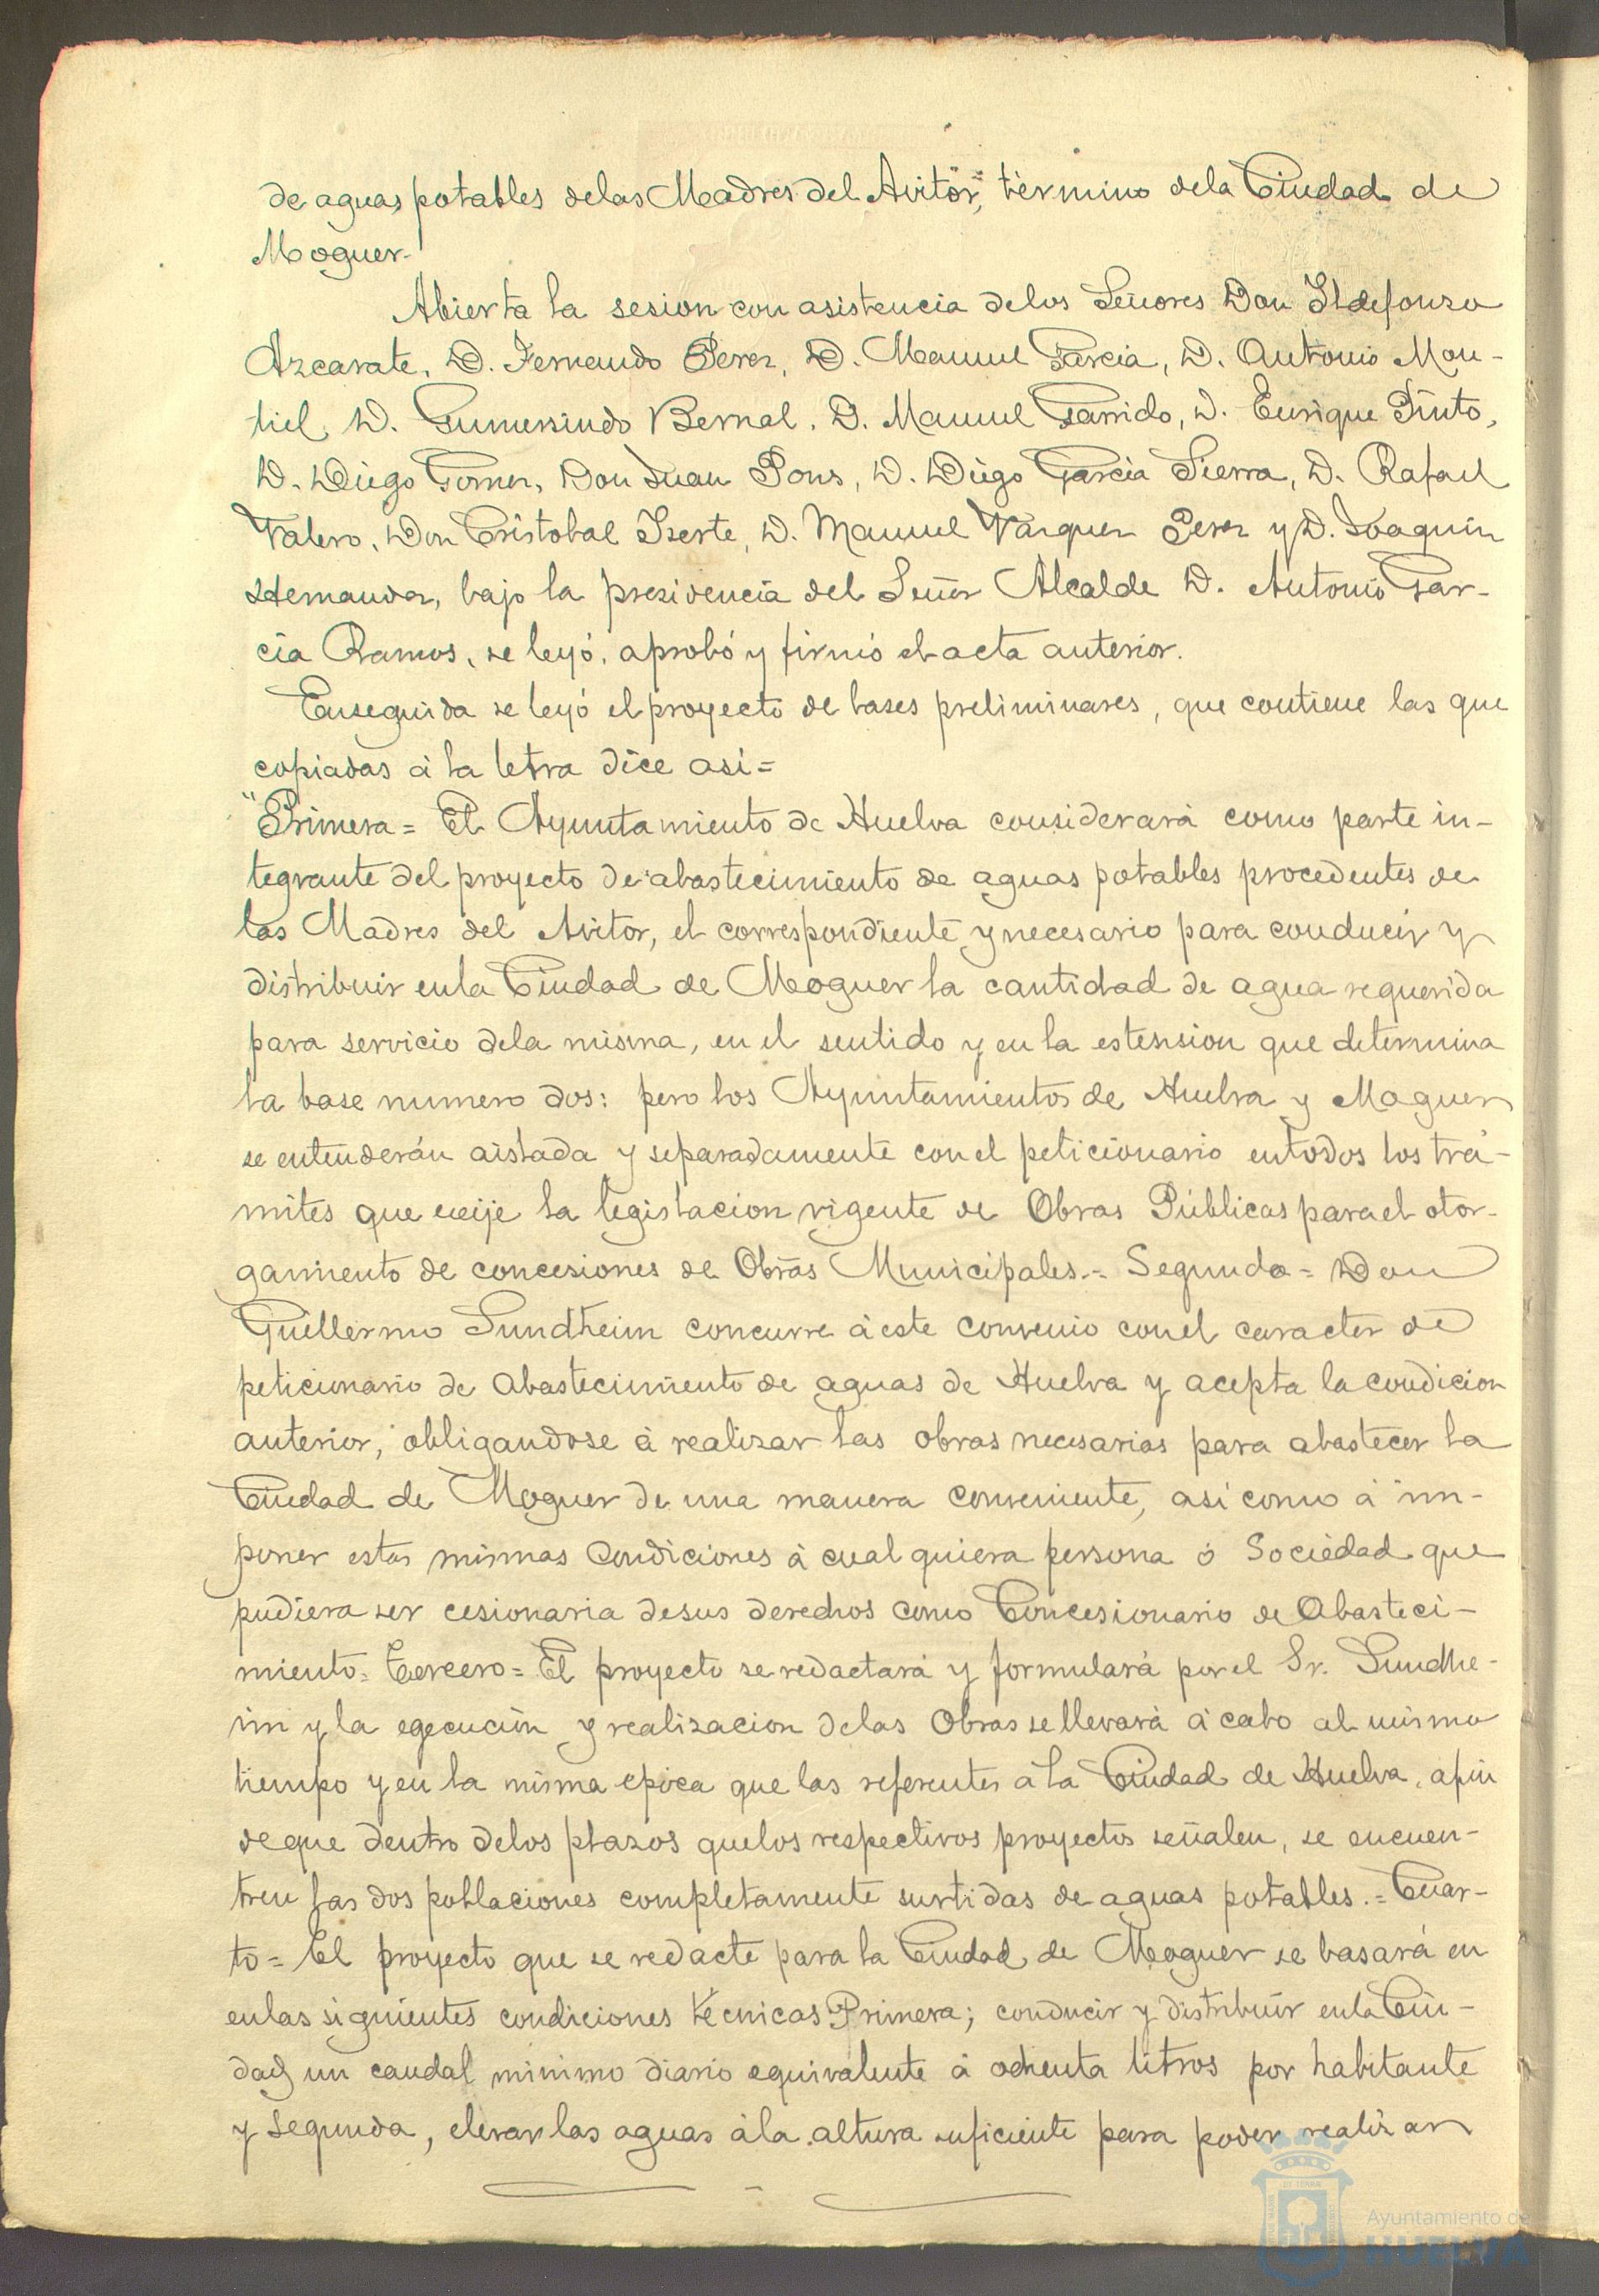 de aguas potables delas Madres del Avitor", término dela Ciudad de
Moguer.
Abierta la sesion con asistencia delos Señores Don Ildefonso
Azcarate, D. Fernando Perez, D. Manuel Garcia, D. Antonio Mon-
tiel, D. Gumersindo Bernal, D. Manuel Garrido, D. Enrique Pinto,
D. Diego Gomez, Don Juan Pons, D. Diego Garcia Sierra, D. Rafael
Valero, Don Cristobal Iserte, D. Manuel Vazquez Perez y D. Joaquin
Hernandez, bajo la presidencia del Señor Alcalde D. Antonio Gar-
cia Ramos, se leyó, aprobó y firmó el acta anterior.
Enseguida se leyó el proyecto de bases preliminares, que contiene las que
copiadas á la letra dice asi=
"Primera= El Ayuntamiento de Huelva considerará como parte in-
tegrante del proyecto de abastecimiento de aguas potables procedentes de
las Madres del Avitor, el correspondiente y necesario para conducir y
distribuir enla Ciudad de Moguer la cantidad de agua requerida
para servicio dela misma, en el sentido y en la estension que determina
la base numero dos: pero los Ayuntamientos de Huelva y Moguer
se entenderán aislada y separadamente con el peticionario entodos los trá-
mites que exije la legislacion vigente de Obras Públicas para el otor-
gamiento de concesiones de Obras Municipales.= Segunda= Don
Guillermo Sundheim concurre á este convenio con el caracter de
peticionario de abastecimiento de aguas de Huelva y acepta la condicion
anterior, obligandose á realizar las obras necesarias para abastecer la
Ciudad de Moguer de una manera conveniente, asi como á im-
poner estas mismas condiciones á cual quiera persona ó Sociedad que
pudiera ser cesionaria desus derechos como Concesionario de Abasteci-
miento= Tercero= El proyecto se redactará y formulará por el Sr. Sundhe-
im y la egecución y realizacion delas Obras se llevará á cabo al mismo
tiempo y en la misma epoca que las referentes á la Ciudad de Huelva, afin
deque dentro delos plazos quelos respectivos proyectos señalen, se encuen-
tren las dos poblaciones completamente surtidas de aguas potables.= Cuar-
to= El proyecto que se redacte para la Ciudad de Moguer se basará en
enlas siguientes condiciones técnicas Primera; conducir y distribuir enla Ciu-
dad un caudal minimo diario equivalente á ochenta litros por habitante
y segunda, elevar las aguas ála altura suficiente para poder realizar
Ayuntamiento de
HUELVA